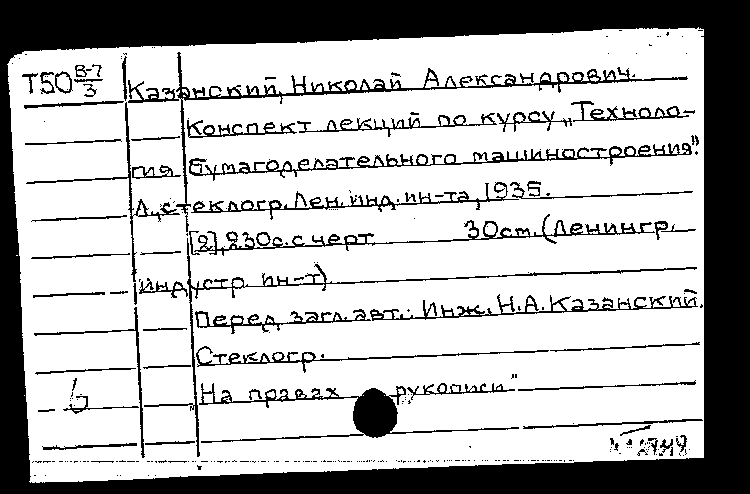 Т50 В-7/3
Казанский, Николай Александрович.
Конспект лекций по курсу „Техноло-
гия бумагоделательного машиностроения".
Л., стеклогр. Лен. инд. ин-та, 1935.
[2], 230с. с черт. 30см. (Ленингр.
индустр. ин-т)
Перед загл. авт.: Инж. Н.А. Казанский.
Стеклогр.
„На правах рукописи"